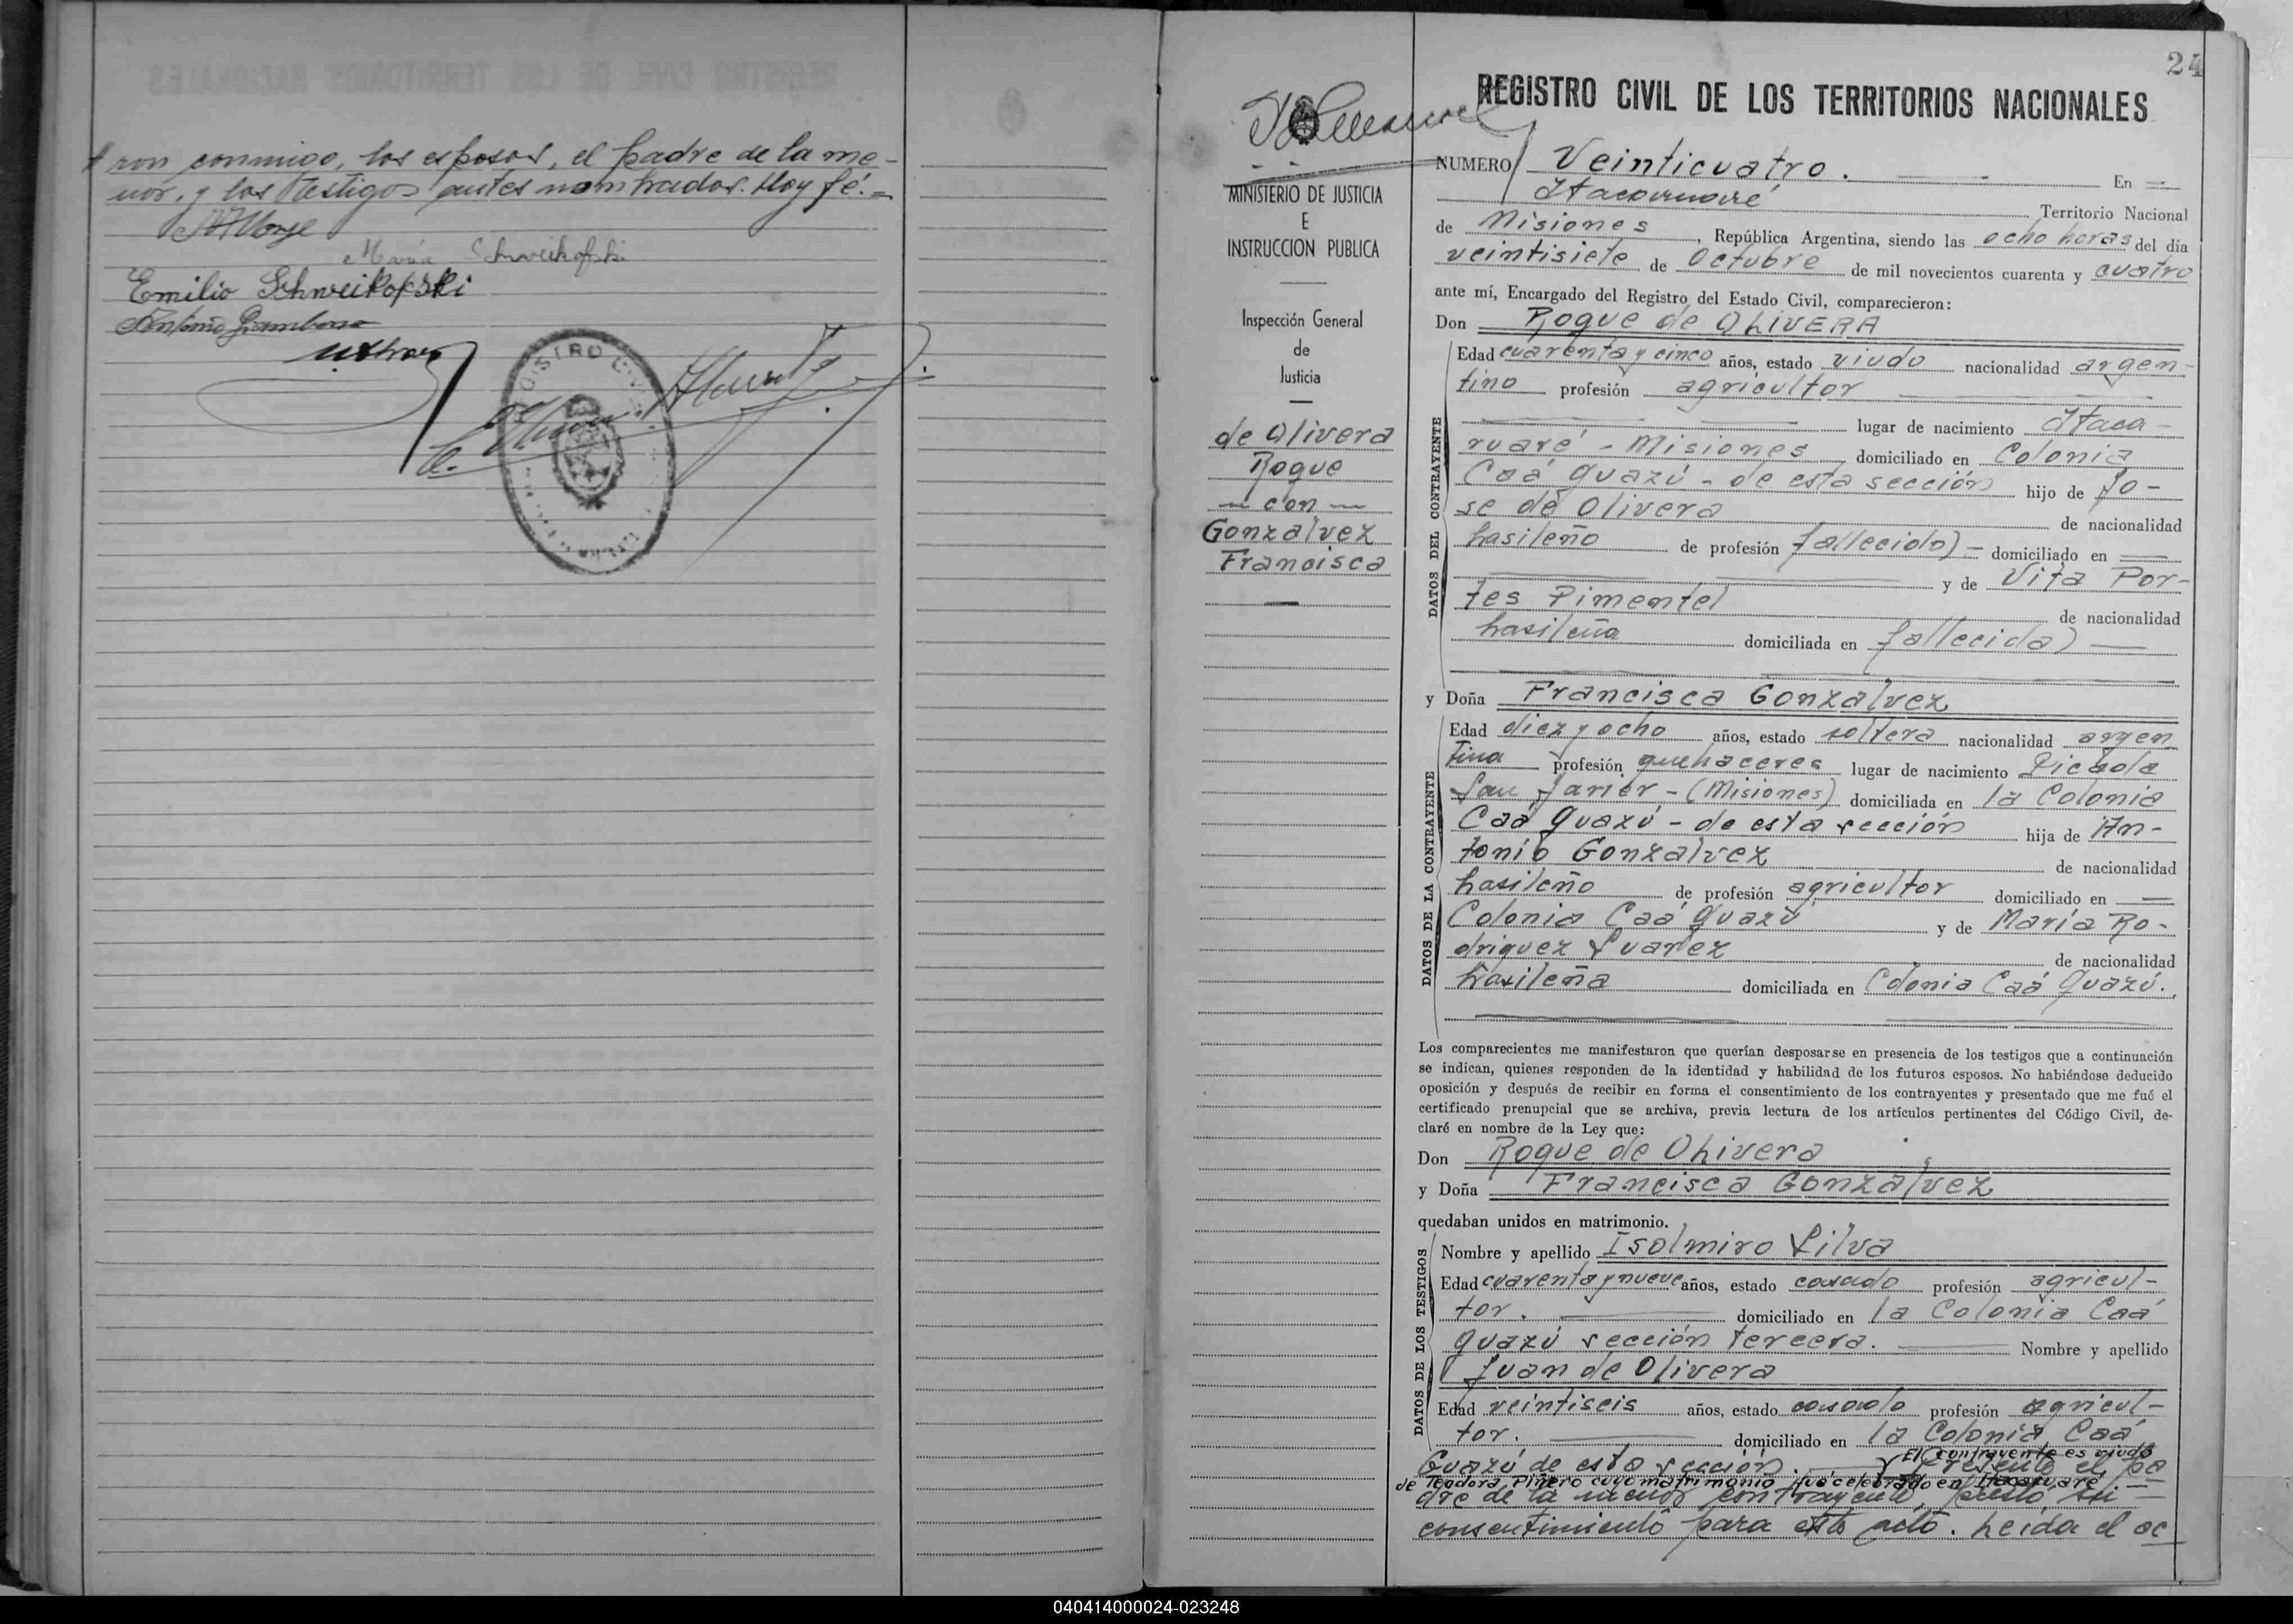 ron conmigo, los esposos, el padre de la me-
nor, y los testigos antes nombrados. Hoy fé.=
María Schweikofski
Emilio Schweikofski
Antonio Gambona
REGISTRO CIVIL
24
REGISTRO CIVIL DE LOS TERRITORIOS NACIONALES
MINISTERIO DE JUSTICIA
E
INSTRUCCION PUBLICA
Inspección General
de
Justicia
de Olivera
Roque
— con —
Gonzalvez
Francisca
NUMERO Veinticuatro. En
Itacaruaré Territorio Nacional
de Misiones, República Argentina, siendo las ocho horas del día
veintisiete de Octubre de mil novecientos cuarenta y cuatro
ante mí, Encargado del Registro del Estado Civil, comparecieron:
Don Roque de OliVERA
DATOS DEL CONTRAYENTE
Edad cuarenta y cinco años, estado viudo nacionalidad argen-
tino profesión agricultor
lugar de nacimiento Itaca-
ruaré - Misiones domiciliado en Colonia
Caá Guazú - de esta sección hijo de Jo-
se de Olivera de nacionalidad
basileño de profesión fallecido) — domiciliado en
y de Vita Por-
tes Pimentel de nacionalidad
basileña domiciliada en fallecida) —
y Doña Francisca Gonzalvez
DATOS DE LA CONTRAYENTE
Edad diez y ocho años, estado soltera nacionalidad argen
tina profesión quehaceres lugar de nacimiento Picada
San Javier - (Misiones) domiciliada en la Colonia
Caá Guazú - de esta sección hija de An-
tonio Gonzalvez de nacionalidad
basileño de profesión agricultor domiciliado en
Colonia Caá Guazú y de María Ro-
driguez Suarez de nacionalidad
brasileña domiciliada en Colonia Caá Guazú.
Los comparecientes me manifestaron que querían desposarse en presencia de los testigos que a continuación
se indican, quienes responden de la identidad y habilidad de los futuros esposos. No habiéndose deducido
oposición y después de recibir en forma el consentimiento de los contrayentes y presentado que me fué el
certificado prenupcial que se archiva, previa lectura de los artículos pertinentes del Código Civil, de-
claré en nombre de la Ley que:
Don Roque de Olivera
y Doña Francisca Gonzalvez
quedaban unidos en matrimonio.
DATOS DE LOS TESTIGOS
Nombre y apellido Isolmiro Silva
Edad cuarenta y nueve años, estado casado profesión agricul-
tor. domiciliado en la Colonia Caá
Guazú sección tercera. Nombre y apellido
Juan de Olivera
Edad veintiseis años, estado casado profesión agricul-
tor. domiciliado en la Colonia Caá
El contrayente es viudo
Guazú de esta sección. Presente el pa
de Teodora Piñero cuyo matrimonio fué celebrado en Itacaruaré. —
dre de la menor contrayente, presto su
consentimiento para este acto. Leida el ac
040414000024-023248